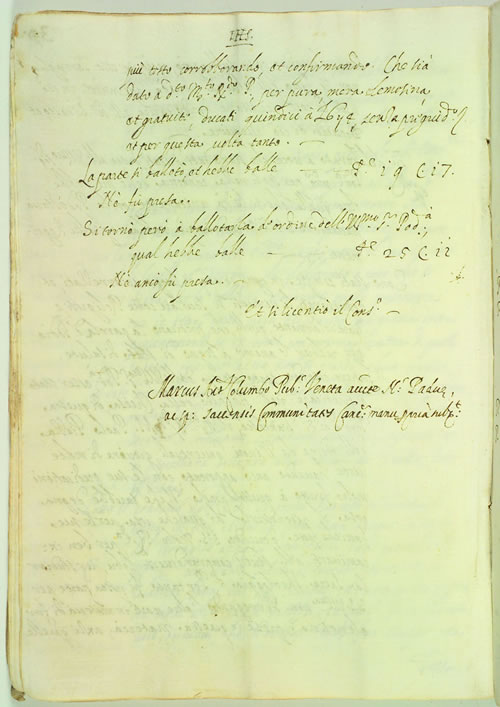 IHS.
più tosto corroborando, et confirmando. Che sia
dato a d.to M.to R.do P. per pura mera elemosina
et gratuito ducati quindici à L 6 s 4,
et per questa volta tanto. —
La parte si balletò, et hebbe balle — P.e 19 C. 17.
Nè fu presa.
Si tornò però à balletarla d'ordine dell' Ill.mo S.r Pod.à
qual hebbe balle — P.e 25 C. 12
Nè anco fù presa.
Et si licentiò il Cons.o —
Marcus Ant.s Columbo Pub.s Veneta aucte N.s Paduæ,
ac Saccensis Communitatis Canc.s manu propria